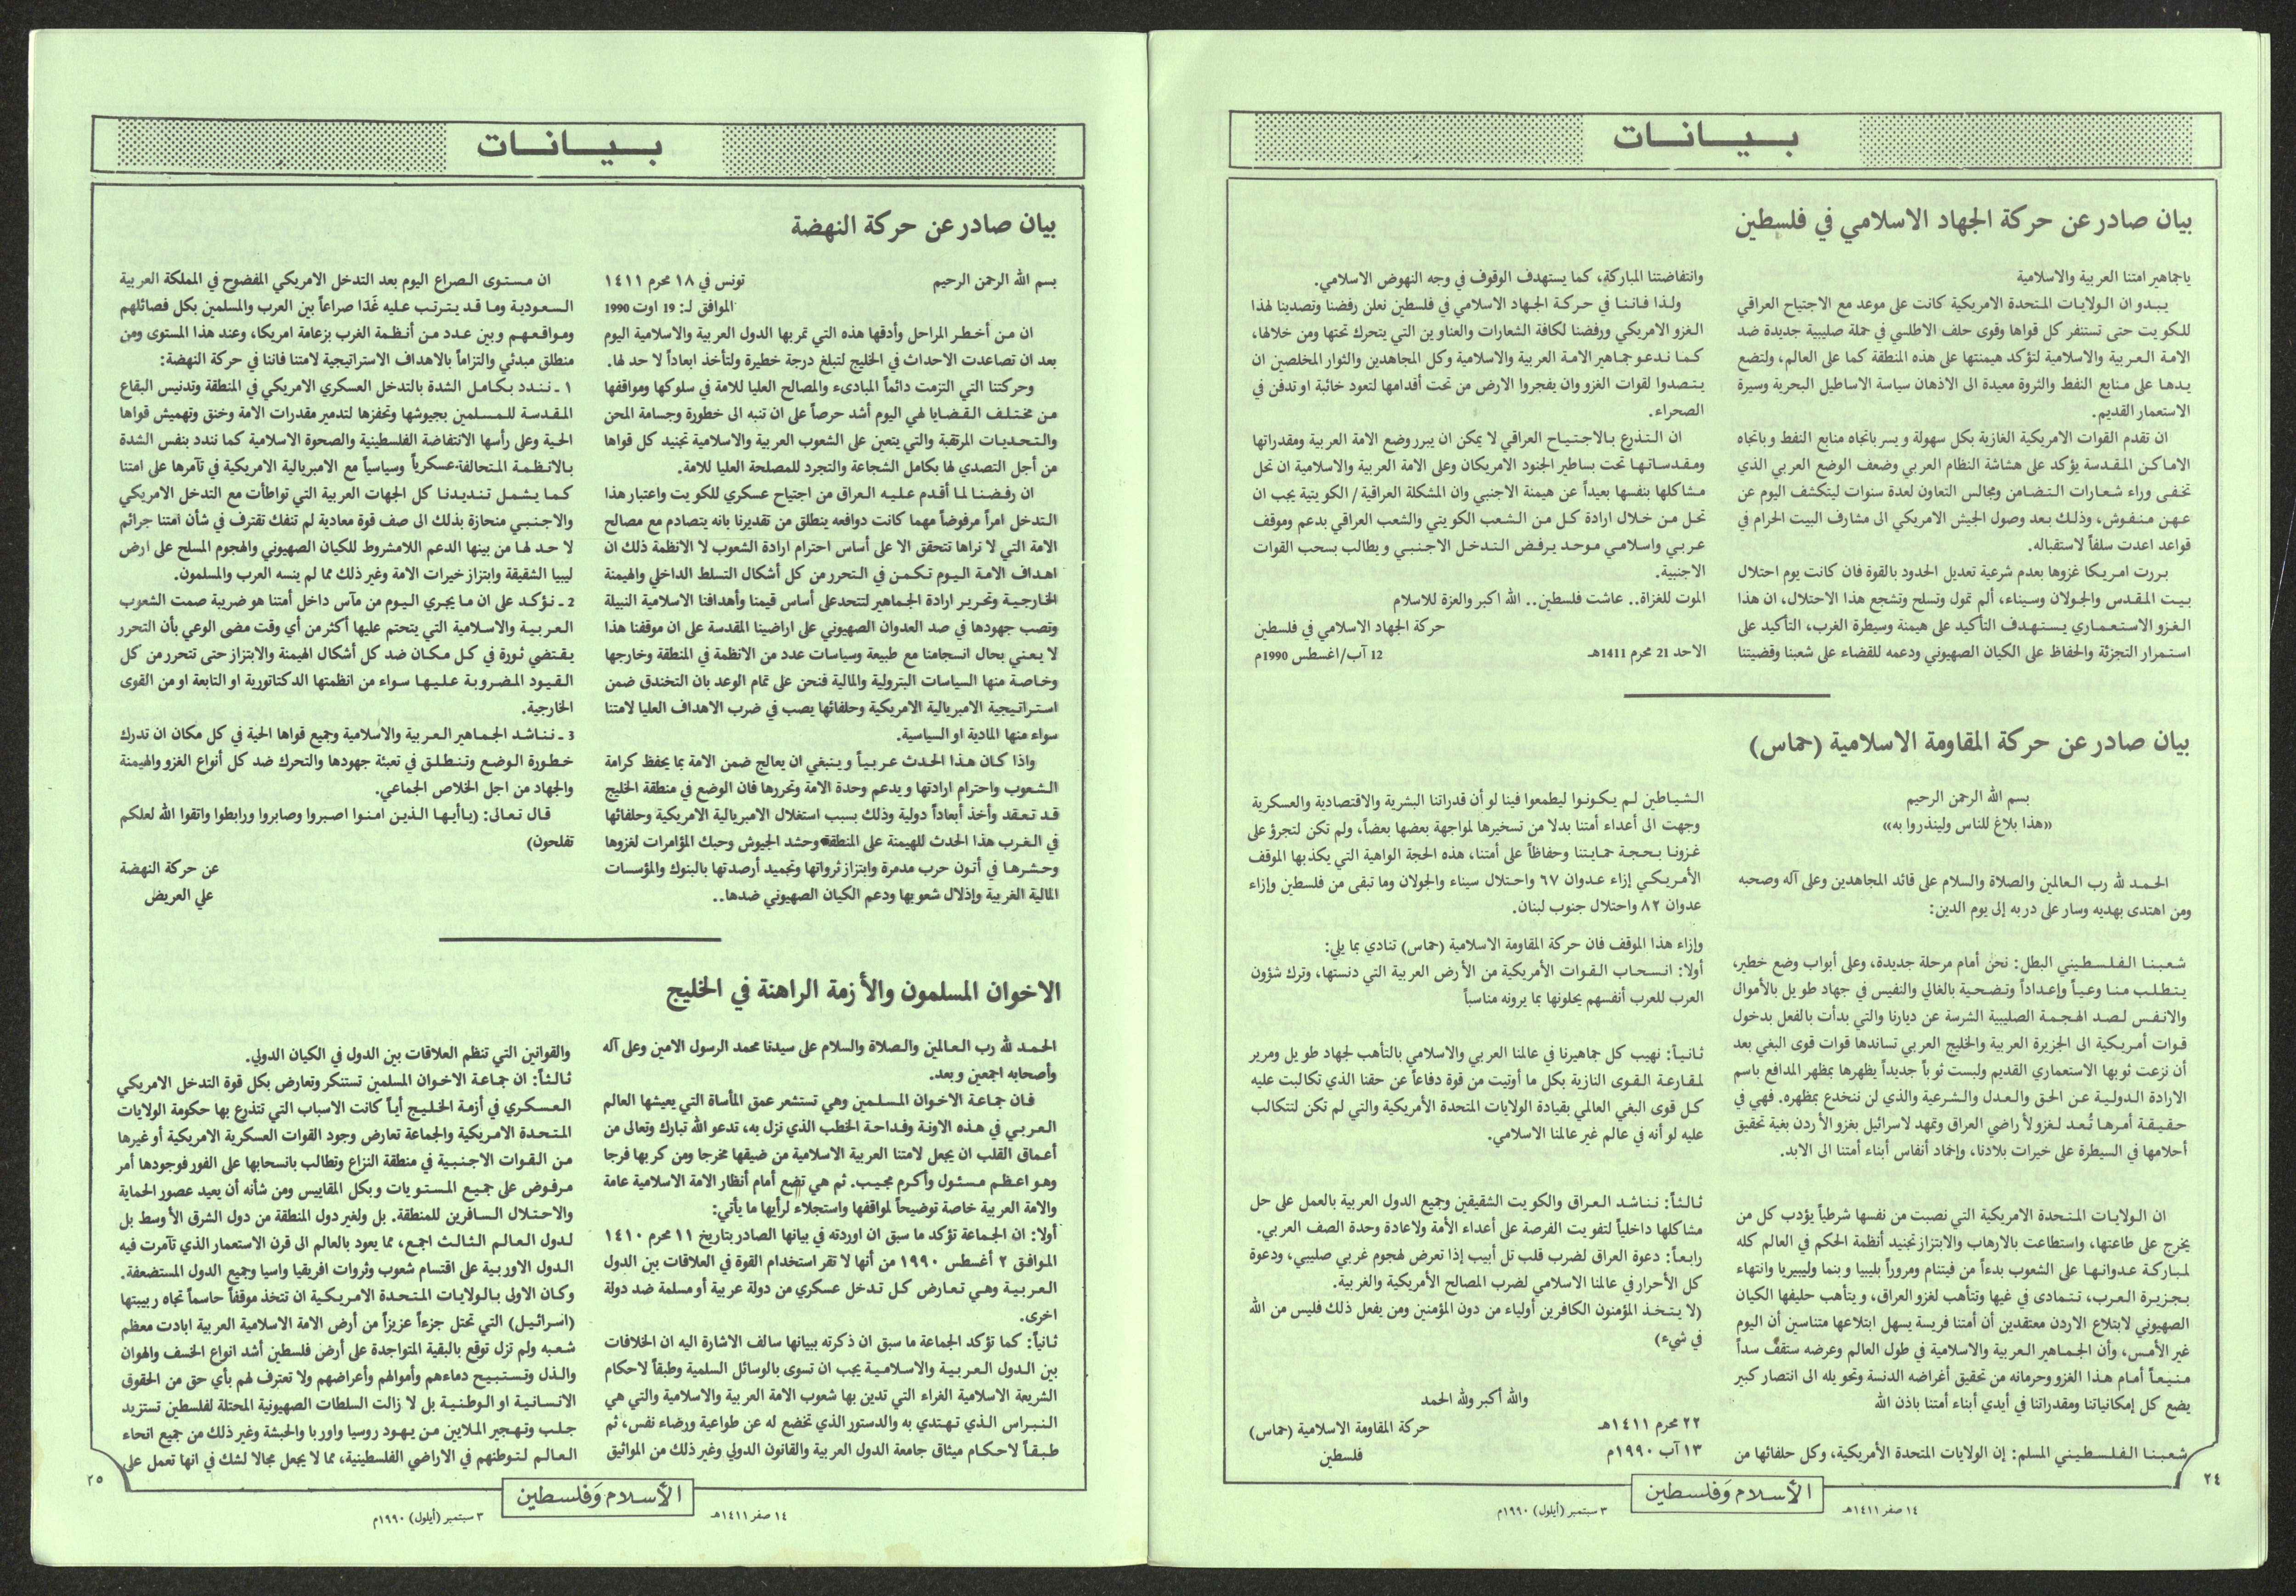 بـيـانـات
بيان صادر عن حركة الجهاد الاسلامي في فلسطين
ياجماهير امتنا العربية والاسلامية
يبدو ان الولايات المتحدة الامريكية كانت على موعد مع الاجتياح العراقي
للكويت حتى تستنفر كل قواها وقوى حلف الاطلسي في حملة صليبية جديدة ضد
الامة العربية والاسلامية لتؤكد هيمنتها على هذه المنطقة كما على العالم، ولتضع
يدها على منابع النفط والثروة معيدة الى الاذهان سياسة الاساطيل البحرية وسيرة
الاستعمار القديم.
ان تقدم القوات الامريكية الغازية بكل سهولة ويسر باتجاه منابع النفط وباتجاه
الاماكن المقدسة يؤكد على هشاشة النظام العربي وضعف الوضع العربي الذي
تخفى وراء شعارات التضامن ومجالس التعاون لعدة سنوات ليتكشف اليوم عن
عهن منفوش، وذلك بعد وصول الجيش الامريكي الى مشارف البيت الحرام في
قواعد اعدت سلفاً لاستقباله.
بررت امريكا غزوها بعدم شرعية تعديل الحدود بالقوة فان كانت يوم احتلال
بيت المقدس والجولان وسيناء، ألم تمول وتسلح وتشجع هذا الاحتلال، ان هذا
الغزو الاستعماري يستهدف التأكيد على هيمنة وسيطرة الغرب، التأكيد على
استمرار التجزئة والحفاظ على الكيان الصهيوني ودعمه للقضاء على شعبنا وقضيتنا
وانتفاضتنا المباركة، كما يستهدف الوقوف في وجه النهوض الاسلامي.
ولذا فاننا في حركة الجهاد الاسلامي في فلسطين نعلن رفضنا وتصدينا لهذا
الغزو الامريكي ورفضنا لكافة الشعارات والعناوين التي يتحرك تحتها ومن خلالها،
كما ندعو جماهير الامة العربية والاسلامية وكل المجاهدين والثوار المخلصين ان
يتصدوا لقوات الغزو وان يفجروا الارض من تحت أقدامها لتعود خائبة او تدفن في
الصحراء.
ان التذرع بالاجتياح العراقي لا يمكن ان يبرر وضع الامة العربية ومقدراتها
ومقدساتها تحت بساطير الجنود الامريكان وعلى الامة العربية والاسلامية ان تحل
مشاكلها بنفسها بعيداً عن هيمنة الاجنبي وان المشكلة العراقية/الكويتية يجب ان
تحل من خلال ارادة كل من الشعب الكويتي والشعب العراقي بدعم وموقف
عربي واسلامي موحد يرفض التدخل الاجنبي ويطالب بسحب القوات
الاجنبية.
الموت للغزاة.. عاشت فلسطين.. الله اكبر والعزة للاسلام
حركة الجهاد الاسلامي في فلسطين
الاحد 21 محرم 1411هـ 12 آب/اغسطس 1990م
بيان صادر عن حركة المقاومة الاسلامية (حماس)
بسم الله الرحمن الرحيم
«هذا بلاغ للناس ولينذروا به»
الحمد لله رب العالمين والصلاة والسلام على قائد المجاهدين وعلى آله وصحبه
ومن اهتدى بهديه وسار على دربه إلى يوم الدين:
شعبنا الفلسطيني البطل: نحن أمام مرحلة جديدة، وعلى أبواب وضع خطير،
يتطلب منا وعياً وإعداداً وتضحية بالغالي والنفيس في جهاد طويل بالأموال
والانفس لصد الهجمة الصليبية الشرسة عن ديارنا والتي بدأت بالفعل بدخول
قوات أمريكية الى الجزيرة العربية والخليج العربي تساندها قوات قوى البغي بعد
أن نزعت ثوبها الاستعماري القديم ولبست ثوباً جديداً يظهرها بمظهر المدافع باسم
الارادة الدولية عن الحق والعدل والشرعية والذي لن ننخدع بمظهره. فهي في
حقيقة أمرها تُعد لغزو لأراضي العراق وتمهد لاسرائيل بغزو الأردن بغية تحقيق
أحلامها في السيطرة على خيرات بلادنا، وإخماد أنفاس أبناء أمتنا الى الابد.
ان الولايات المتحدة الامريكية التي نصبت من نفسها شرطياً يؤدب كل من
يخرج على طاعتها، واستطاعت بالارهاب والابتزاز تجنيد أنظمة الحكم في العالم كله
لمباركة عدوانها على الشعوب بدءاً من فيتنام ومروراً بليبيا وبنما وليبيريا وانتهاء
بجزيرة العرب، تتمادى في غيها وتتأهب لغزو العراق، ويتأهب حليفها الكيان
الصهيوني لابتلاع الاردن معتقدين أن أمتنا فريسة يسهل ابتلاعها متناسين أن اليوم
غير الأمس، وأن الجماهير العربية والاسلامية في طول العالم وعرضه ستقف سداً
منيعاً أمام هذا الغزو وحرمانه من تحقيق أغراضه الدنسة وتحويله الى انتصار كبير
يضع كل إمكانياتنا ومقدراتنا في أيدي أبناء أمتنا باذن الله
شعبنا الفلسطيني المسلم: إن الولايات المتحدة الأمريكية، وكل حلفائها من
الشياطين لم يكونوا ليطمعوا فينا لو أن قدراتنا البشرية والاقتصادية والعسكرية
وجهت الى أعداء أمتنا بدلا من تسخيرها لمواجهة بعضها بعضاً، ولم تكن لتجرؤ على
غزونا بحجة حمايتنا وحفاظاً على أمتنا، هذه الحجة الواهية التي يكذبها الموقف
الأمريكي إزاء عدوان ٦٧ واحتلال سيناء والجولان وما تبقى من فلسطين وإزاء
عدوان ٨٢ واحتلال جنوب لبنان.
وإزاء هذا الموقف فان حركة المقاومة الاسلامية (حماس) تنادي بما يلي:
أولا: انسحاب القوات الأمريكية من الأرض العربية التي دنستها، وترك شؤون
العرب للعرب أنفسهم يحلونها بما يرونه مناسباً
ثانياً: نهيب كل جماهيرنا في عالمنا العربي والاسلامي بالتأهب لجهاد طويل ومرير
لمقارعة القوى النازية بكل ما أوتيت من قوة دفاعاً عن حقنا الذي تكالبت عليه
كل قوى البغي العالمي بقيادة الولايات المتحدة الأمريكية والتي لم تكن لتتكالب
عليه لو أنه في عالم غير عالمنا الاسلامي.
ثالثاً: نناشد العراق والكويت الشقيقين وجميع الدول العربية بالعمل على حل
مشاكلها داخلياً لتفويت الفرصة على أعداء الأمة ولاعادة وحدة الصف العربي.
رابعاً: دعوة العراق لضرب قلب تل أبيب إذا تعرض لهجوم غربي صليبي، ودعوة
كل الأحرار في عالمنا الاسلامي لضرب المصالح الأمريكية والغربية.
(لا يتخذ المؤمنون الكافرين أولياء من دون المؤمنين ومن يفعل ذلك فليس من الله
في شيء)
والله أكبر ولله الحمد
٢٢ محرم ١٤١١هـ حركة المقاومة الاسلامية (حماس)
١٣ آب ١٩٩٠م فلسطين
٢٤
الأسلام وَفلسطين
١٤ صفر ١٤١١هـ ٣ سبتمبر (أيلول) ١٩٩٠م
بـيـانـات
بيان صادر عن حركة النهضة
بسم الله الرحمن الرحيم تونس في ١٨ محرم ١٤١١
الموافق لـ: 19 اوت 1990
ان من أخطر المراحل وأدقها هذه التي تمر بها الدول العربية والاسلامية اليوم
بعد ان تصاعدت الاحداث في الخليج لتبلغ درجة خطيرة ولتأخذ ابعاداً لا حد لها.
وحركتنا التي التزمت دائماً المبادىء والمصالح العليا للامة في سلوكها ومواقفها
من مختلف القضايا لهي اليوم أشد حرصاً على ان تنبه الى خطورة وجسامة المحن
والتحديات المرتقبة والتي يتعين على الشعوب العربية والاسلامية تجنيد كل قواها
من أجل التصدي لها بكامل الشجاعة والتجرد للمصلحة العليا للامة.
ان رفضنا لما أقدم عليه العراق من اجتياح عسكري للكويت واعتبار هذا
التدخل امراً مرفوضاً مهما كانت دوافعه ينطلق من تقديرنا بانه يتصادم مع مصالح
الامة التي لا نراها تتحقق الا على أساس احترام ارادة الشعوب لا الانظمة ذلك ان
اهداف الامة اليوم تكمن في التحرر من كل أشكال التسلط الداخلي والهيمنة
الخارجية وتحرير ارادة الجماهير لتتحد على أساس قيمنا وأهدافنا الاسلامية النبيلة
وتصب جهودها في صد العدوان الصهيوني على اراضينا المقدسة على ان موقفنا هذا
لا يعني بحال انسجامنا مع طبيعة وسياسات عدد من الانظمة في المنطقة وخارجها
وخاصة منها السياسات البترولية والمالية فنحن على تمام الوعد بان التخندق ضمن
استراتيجية الامبريالية الامريكية وحلفائها يصب في ضرب الاهداف العليا لامتنا
سواء منها المادية او السياسية.
واذا كان هذا الحدث عربياً وينبغي ان يعالج ضمن الامة بما يحفظ كرامة
الشعوب واحترام ارادتها ويدعم وحدة الامة وتحررها فان الوضع في منطقة الخليج
قد تعقد وأخذ أبعاداً دولية وذلك بسبب استغلال الامبريالية الامريكية وحلفائها
في الغرب هذا الحدث للهيمنة على المنطقة وحشد الجيوش وحبك المؤامرات لغزوها
وحشرها في أتون حرب مدمرة وابتزاز ثرواتها وتجميد أرصدتها بالبنوك والمؤسسات
المالية الغربية وإذلال شعوبها ودعم الكيان الصهيوني ضدها..
ان مستوى الصراع اليوم بعد التدخل الامريكي المفضوح في المملكة العربية
السعودية وما قد يترتب عليه غَدًا صراعاً بين العرب والمسلمين بكل فصائلهم
ومواقعهم وبين عدد من أنظمة الغرب بزعامة امريكا، وعند هذا المستوى ومن
منطلق مبدئي والتزاماً بالاهداف الاستراتيجية لامتنا فاننا في حركة النهضة:
١ ـ نندد بكامل الشدة بالتدخل العسكري الامريكي في المنطقة وتدنيس البقاع
المقدسة للمسلمين بجيوشها وتحفزها لتدمير مقدرات الامة وخنق وتهميش قواها
الحية وعلى رأسها الانتفاضة الفلسطينية والصحوة الاسلامية كما نندد بنفس الشدة
بالانظمة المتحالفة عسكرياً وسياسياً مع الامبريالية الامريكية في تآمرها على امتنا
كما يشمل تنديدنا كل الجهات العربية التي تواطأت مع التدخل الامريكي
والاجنبي منحازة بذلك الى صف قوة معادية لم تنفك تقترف في شأن امتنا جرائم
لا حد لها من بينها الدعم اللامشروط للكيان الصهيوني والهجوم المسلح على ارض
ليبيا الشقيقة وابتزاز خيرات الامة وغير ذلك مما لم ينسه العرب والمسلمون.
2 ـ نؤكد على ان ما يجري اليوم من مآس داخل أمتنا هو ضريبة صمت الشعوب
العربية والاسلامية التي يتحتم عليها أكثر من أي وقت مضى الوعي بأن التحرر
يقتضي ثورة في كل مكان ضد كل أشكال الهيمنة والابتزاز حتى تتحرر من كل
القيود المضروبة عليها سواء من انظمتها الدكتاتورية او التابعة او من القوى
الخارجية.
3 ـ نناشد الجماهير العربية والاسلامية وجميع قواها الحية في كل مكان ان تدرك
خطورة الوضع وتنطلق في تعبئة جهودها والتحرك ضد كل أنواع الغزو والهيمنة
والجهاد من اجل الخلاص الجماعي.
قال تعالى: (يا أيها الذين امنوا اصبروا وصابروا ورابطوا واتقوا الله لعلكم
تفلحون)
عن حركة النهضة
علي العريض
الاخوان المسلمون والأزمة الراهنة في الخليج
الحمد لله رب العالمين والصلاة والسلام على سيدنا محمد الرسول الامين وعلى آله
وأصحابه اجمعين وبعد.
فان جماعة الاخوان المسلمين وهي تستشعر عمق المأساة التي يعيشها العالم
العربي في هذه الاونة وفداحة الخطب الذي نزل به، تدعو الله تبارك وتعالى من
أعماق القلب ان يجعل لامتنا العربية الاسلامية من ضيقها مخرجا ومن كربها فرجا
وهو اعظم مسئول وأكرم مجيب. ثم هي تضع أمام أنظار الامة الاسلامية عامة
والامة العربية خاصة توضيحاً لمواقفها واستجلاء لرأيها ما يأتي:
أولا: ان الجماعة تؤكد ما سبق ان اوردته في بيانها الصادر بتاريخ ١١ محرم ١٤١٠
الموافق ٢ أغسطس ١٩٩٠ من أنها لا تقر استخدام القوة في العلاقات بين الدول
العربية وهي تعارض كل تدخل عسكري من دولة عربية أو مسلمة ضد دولة
اخرى.
ثانياً: كما تؤكد الجماعة ما سبق ان ذكرته ببيانها سالف الاشارة اليه ان الخلافات
بين الدول العربية والاسلامية يجب ان تسوى بالوسائل السلمية وطبقاً لاحكام
الشريعة الاسلامية الغراء التي تدين بها شعوب الامة العربية والاسلامية والتي هي
النبراس الذي تهتدي به والدستور الذي تخضع له عن طواعية ورضاء نفس، ثم
طبقاً لاحكام ميثاق جامعة الدول العربية والقانون الدولي وغير ذلك من المواثيق
والقوانين التي تنظم العلاقات بين الدول في الكيان الدولي.
ثالثاً: ان جماعة الاخوان المسلمين تستنكر وتعارض بكل قوة التدخل الامريكي
العسكري في أزمة الخليج أياً كانت الاسباب التي تتذرع بها حكومة الولايات
المتحدة الامريكية والجماعة تعارض وجود القوات العسكرية الامريكية أو غيرها
من القوات الاجنبية في منطقة النزاع وتطالب بانسحابها على الفور فوجودها أمر
مرفوض على جميع المستويات وبكل المقاييس ومن شأنه أن يعيد عصور الحماية
والاحتلال السافرين للمنطقة. بل ولغير دول المنطقة من دول الشرق الأوسط بل
لدول العالم الثالث اجمع، مما يعود بالعالم الى قرن الاستعمار الذي تآمرت فيه
الدول الاوربية على اقتسام شعوب وثروات افريقيا واسيا وجميع الدول المستضعفة.
وكان الاولى بالولايات المتحدة الامريكية ان تتخذ موقفاً حاسماً تجاه ربيبتها
(اسرائيل) التي تحتل جزءاً عزيزاً من أرض الامة الاسلامية العربية ابادت معظم
شعبه ولم تزل توقع بالبقية المتواجدة على أرض فلسطين أشد انواع الخسف والهوان
والذل وتستبيح دماءهم وأموالهم وأعراضهم ولا تعترف لهم بأي حق من الحقوق
الانسانية او الوطنية بل لا زالت السلطات الصهيونية المحتلة لفلسطين تستزيد
جلب وتهجير الملايين من يهود روسيا واوربا والحبشة وغير ذلك من جميع انحاء
العالم لتوطنهم في الاراضي الفلسطينية، مما لا يجعل مجالا لشك في انها تعمل على
٢٥
الأسلام وَفلسطين
١٤ صفر ١٤١١هـ ٣ سبتمبر (أيلول) ١٩٩٠م